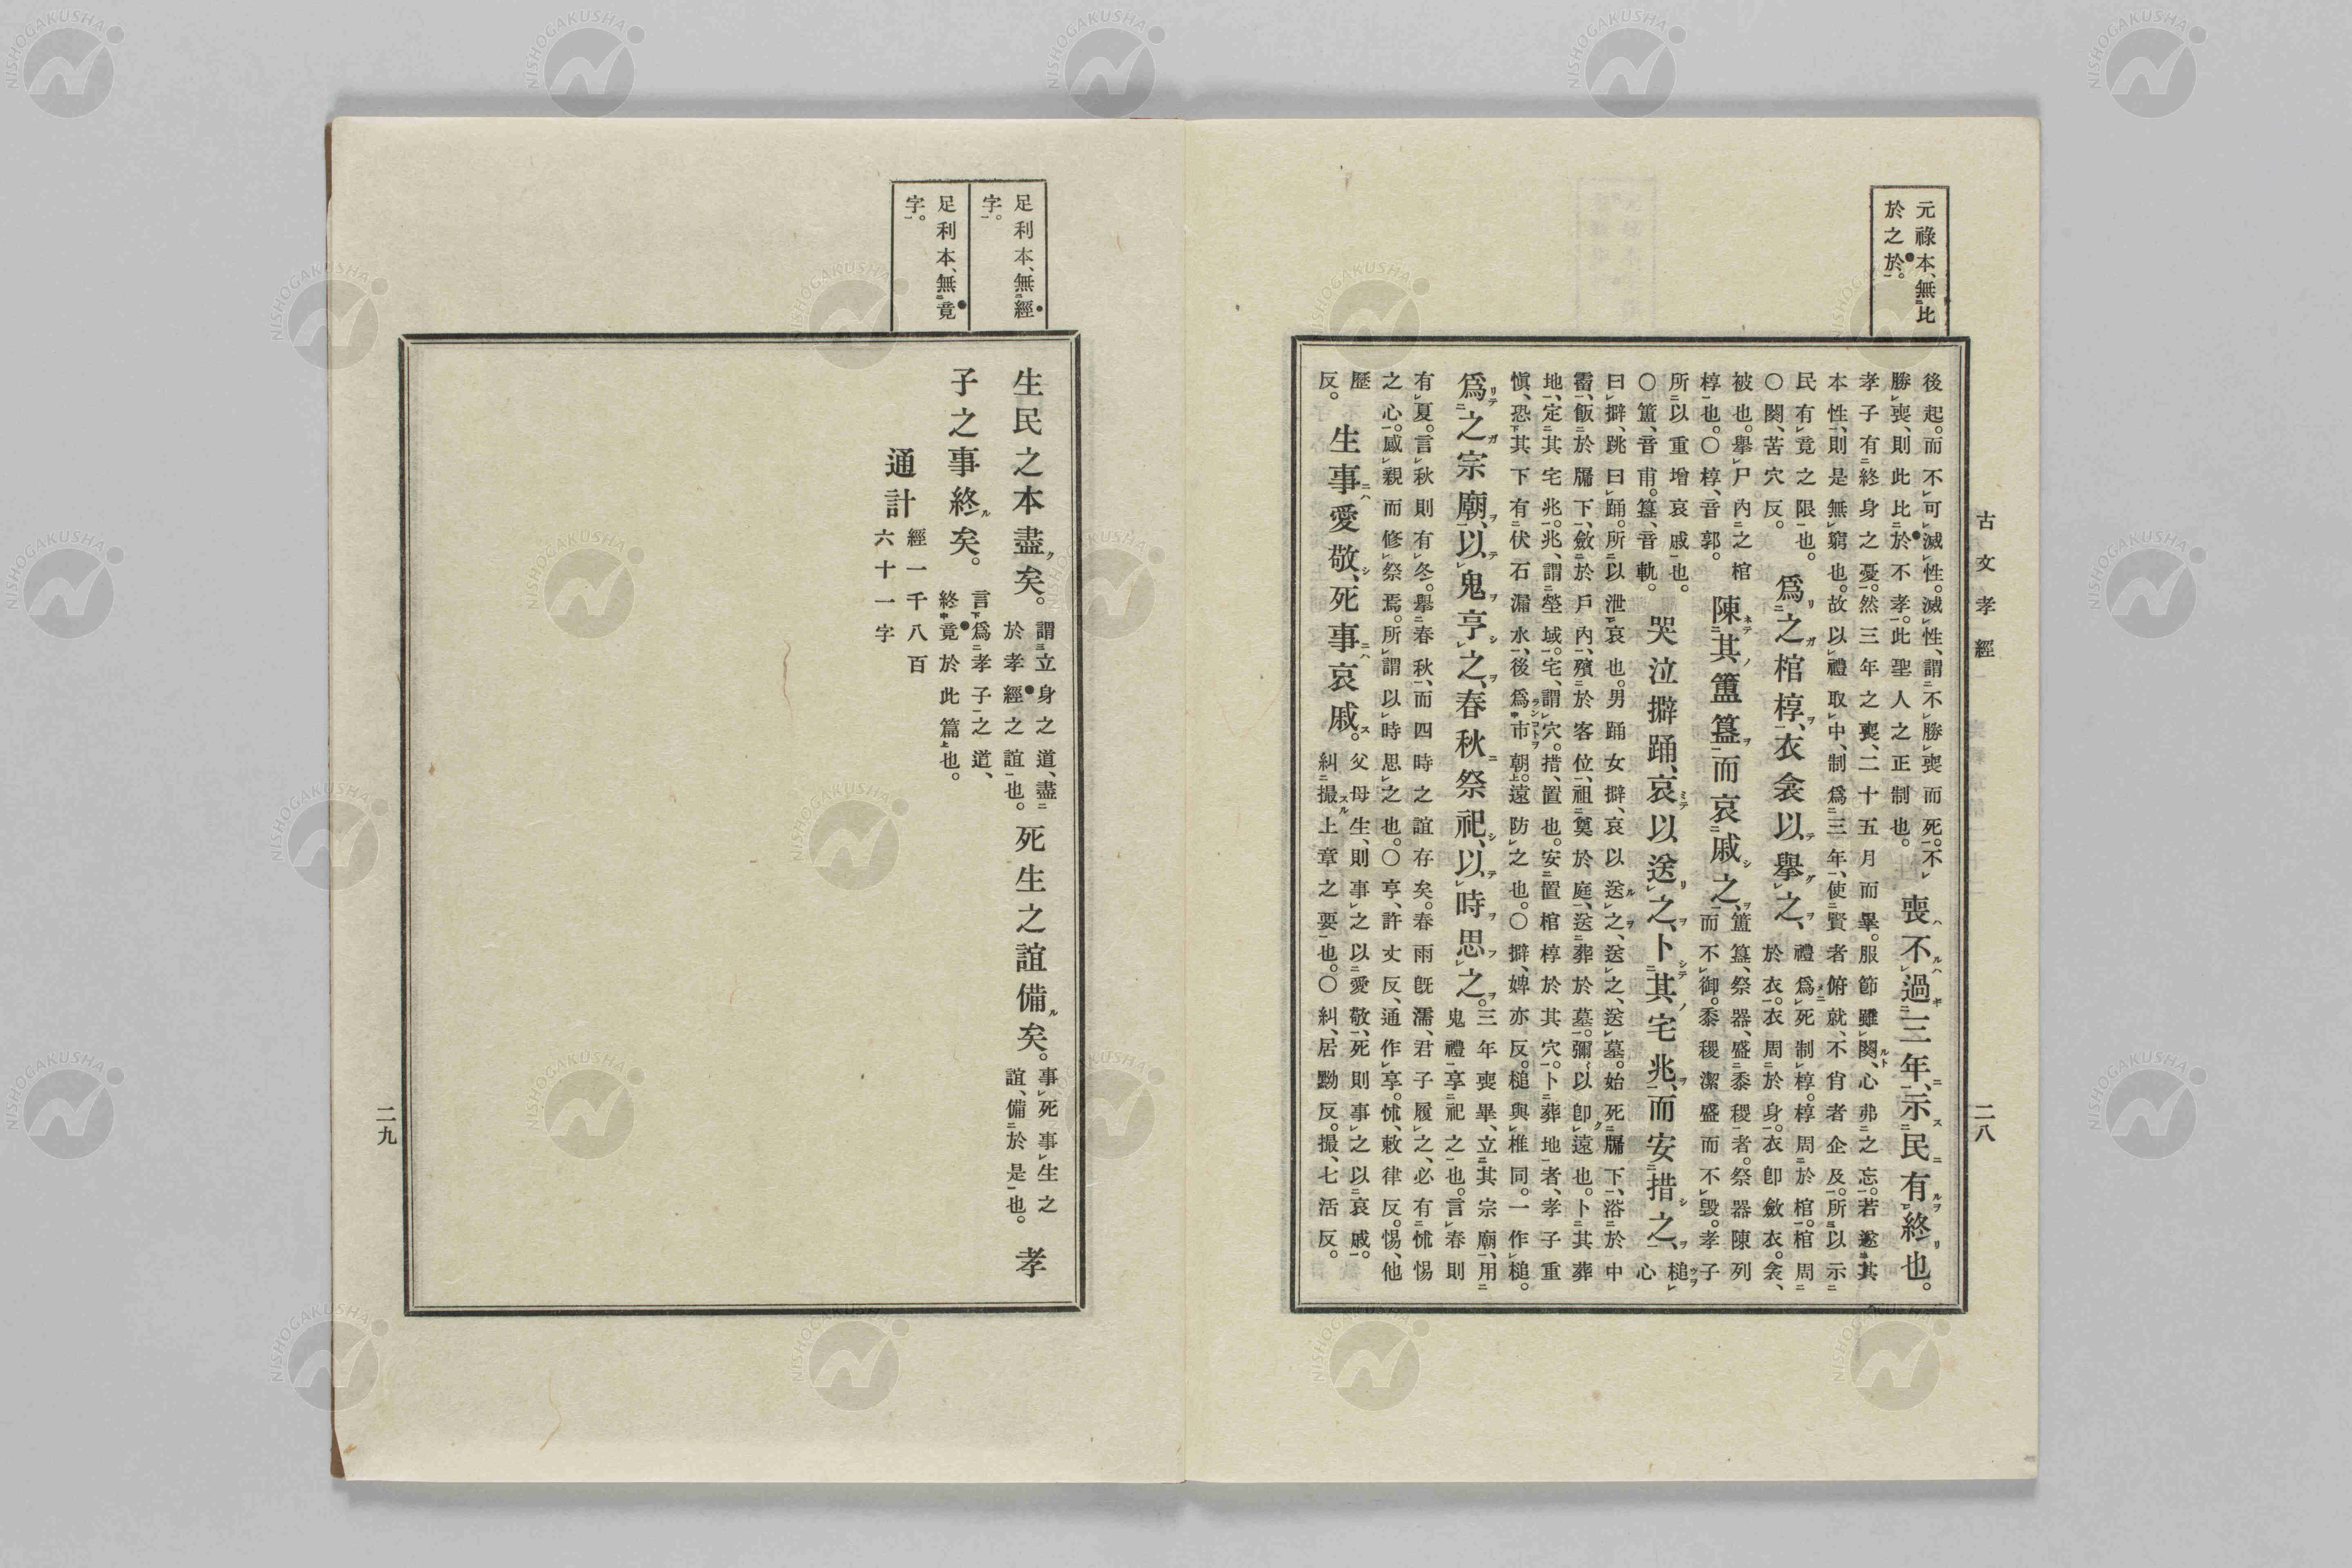 元祿本、無比
於之於。
古文孝經
二八
後起。而不可滅性。滅性、謂不勝喪而死。不
勝喪、則此比於不孝。此聖人之正制也。
喪不過三年、示民有終也。
孝子有終身之憂。然三年之喪、二十五月而畢。服節雖闋、心弗之忘。若遂其
本性、則是無窮也。故以禮取中、制爲三年、使賢者俯就、不肖者企及。所以示
民有竟之限也。
〇闋、苦穴反。
爲之棺椁、衣衾以擧之、
禮爲死制椁。椁周於棺。棺周
於衣。衣周於身。衣卽斂衣。衾、
被也。擧尸內之棺
椁也。〇椁、音郭。
陳其簠簋而哀戚之、
簠簋、祭器、盛黍稷者。祭器陳列
而不御。黍稷潔盛而不毀。孝子
所以重增哀戚也。
〇簠、音甫。簋、音軌。
哭泣擗踊、哀以送之、卜其宅兆、而安措之、
槌
心
曰擗、跳曰踊。所以泄哀也。男踊女擗、哀以送之、送之、送墓。始死牖下、浴於中
霤、飯於牖下、斂於戶內、殯於客位、祖奠於庭、送葬於墓。彌以卽遠也。卜其葬
地、定其宅兆。兆、謂塋域。宅、謂穴。措、置也。安置棺椁於其穴。卜葬地者、孝子重
愼、恐其下有伏石漏水、後爲市朝。遠防之也。〇擗、婢亦反。槌與椎同。一作槌。
爲之宗廟、以鬼亨之、春秋祭祀、以時思之。
三年喪畢、立其宗廟、用
鬼禮享祀之也。言春則
有夏。言秋則有冬。擧春秋、而四時之誼存矣。春雨旣濡、君子履之、必有怵惕
之心。感親而修祭焉。所謂以時思之也。〇亨、許丈反、通作享。怵、敕律反。惕、他
歷
反。
生事愛敬、死事哀戚。
父母生、則事之以愛敬、死則事之以哀戚。
糾撮上章之要也。〇糾、居黝反。撮、七活反。
足利本、無經
字。
足利本、無竟
字。
生民之本盡矣。
謂立身之道、盡
於孝經之誼也。
死生之誼備矣。
事死事生之
誼、備於是也。
孝
子之事終矣。
言爲孝子之道、
終竟於此篇也。
通計
經一千八百
六十一字
二九